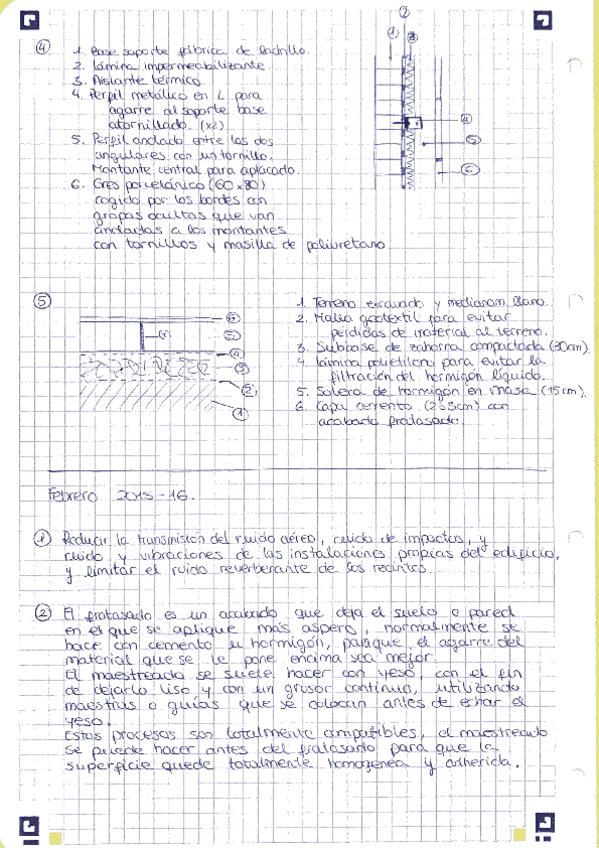 ④
1. Base soporte fábrica de ladrillo.
2. lámina impermeabilizante
3. Aislante térmico
4. Perfil metálico en L para
agarre al soporte base
atornillado. (x2)
5. Perfil anclado entre los dos
angulares con un tornillo.
Montante central para aplacado.
6. Gres porcelánico (60x80)
cogido por los bordes con
grapas ocultas que van
ancladas a los montantes
con tornillos y masilla de poliuretano.
① ② ③
④
⑤
⑥
⑤
1. Terreno excavado y medianam. llano.
2. Malla geotextil para evitar
pérdidas de material al terreno.
3. Subbase de zahorra compactada (30cm).
4. lámina polietileno para evitar la
filtración del hormigón líquido.
5. Solera de hormigón en masa (15cm).
6. Capa cemento (2o3cm) con
acabado fratasado.
⑥
⑤
④
③
②
①
Febrero 2015-16.
① Reducir la transmisión del ruido aéreo, ruido de impactos, y
ruido y vibraciones de las instalaciones propias del edificio,
y limitar el ruido reverberante de los recintos.
② El fratasado es un acabado que deja el suelo o pared
en el que se aplique más áspero, normalmente se
hace con cemento u hormigón, para que el agarre del
material que se le pone encima sea mejor.
El maestreado se suele hacer con yeso, con el fin
de dejarlo liso y con un grosor continuo, utilizando
maestras o guías que se colocan antes de echar el
yeso.
Estos procesos son totalmente compatibles, el maestreado
se puede hacer antes del fratasado para que la
superficie quede totalmente homogénea y adherida.